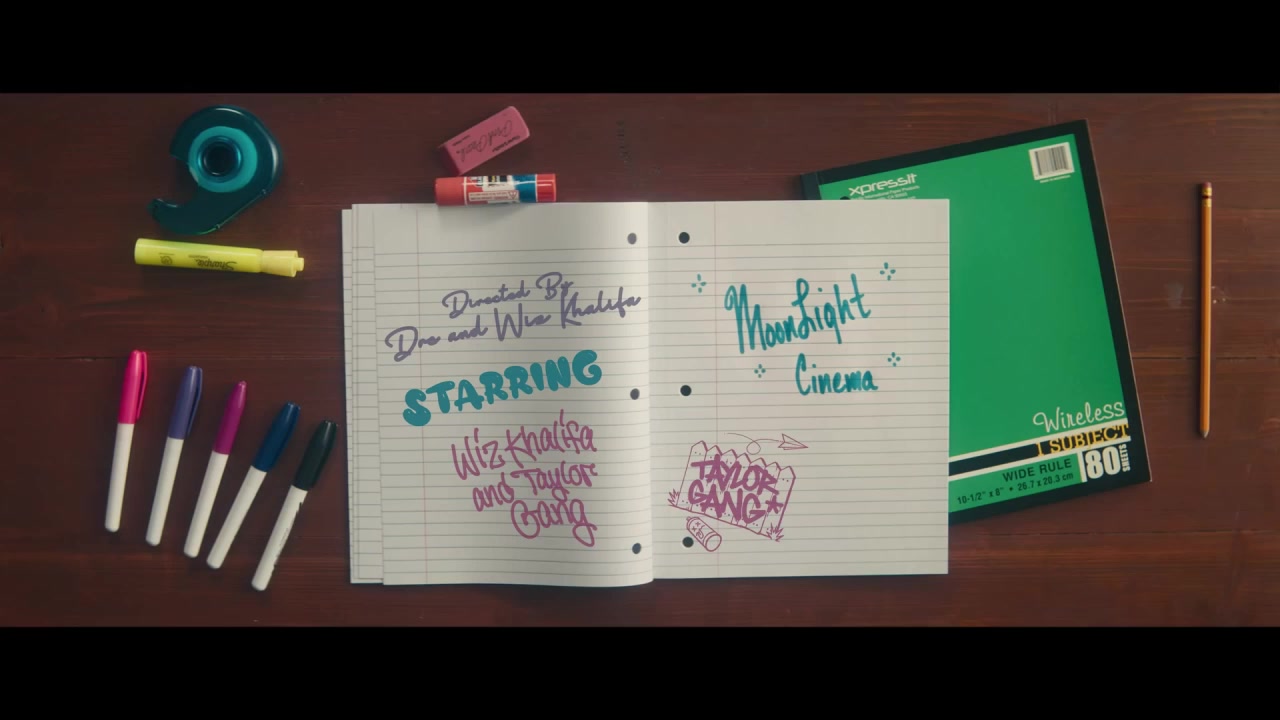 Directed By
Dre and Wiz Khalifa
STARRING
Wiz Khalifa
and Taylor
Gang
MoonLight
Cinema
TAYLOR
GANG
xpressit
Wireless
1 SUBJECT
WIDE RULE
80 SHEETS
10-1/2" x 8" • 26.7 x 20.3 cm
Pink Pearl
Sharpie